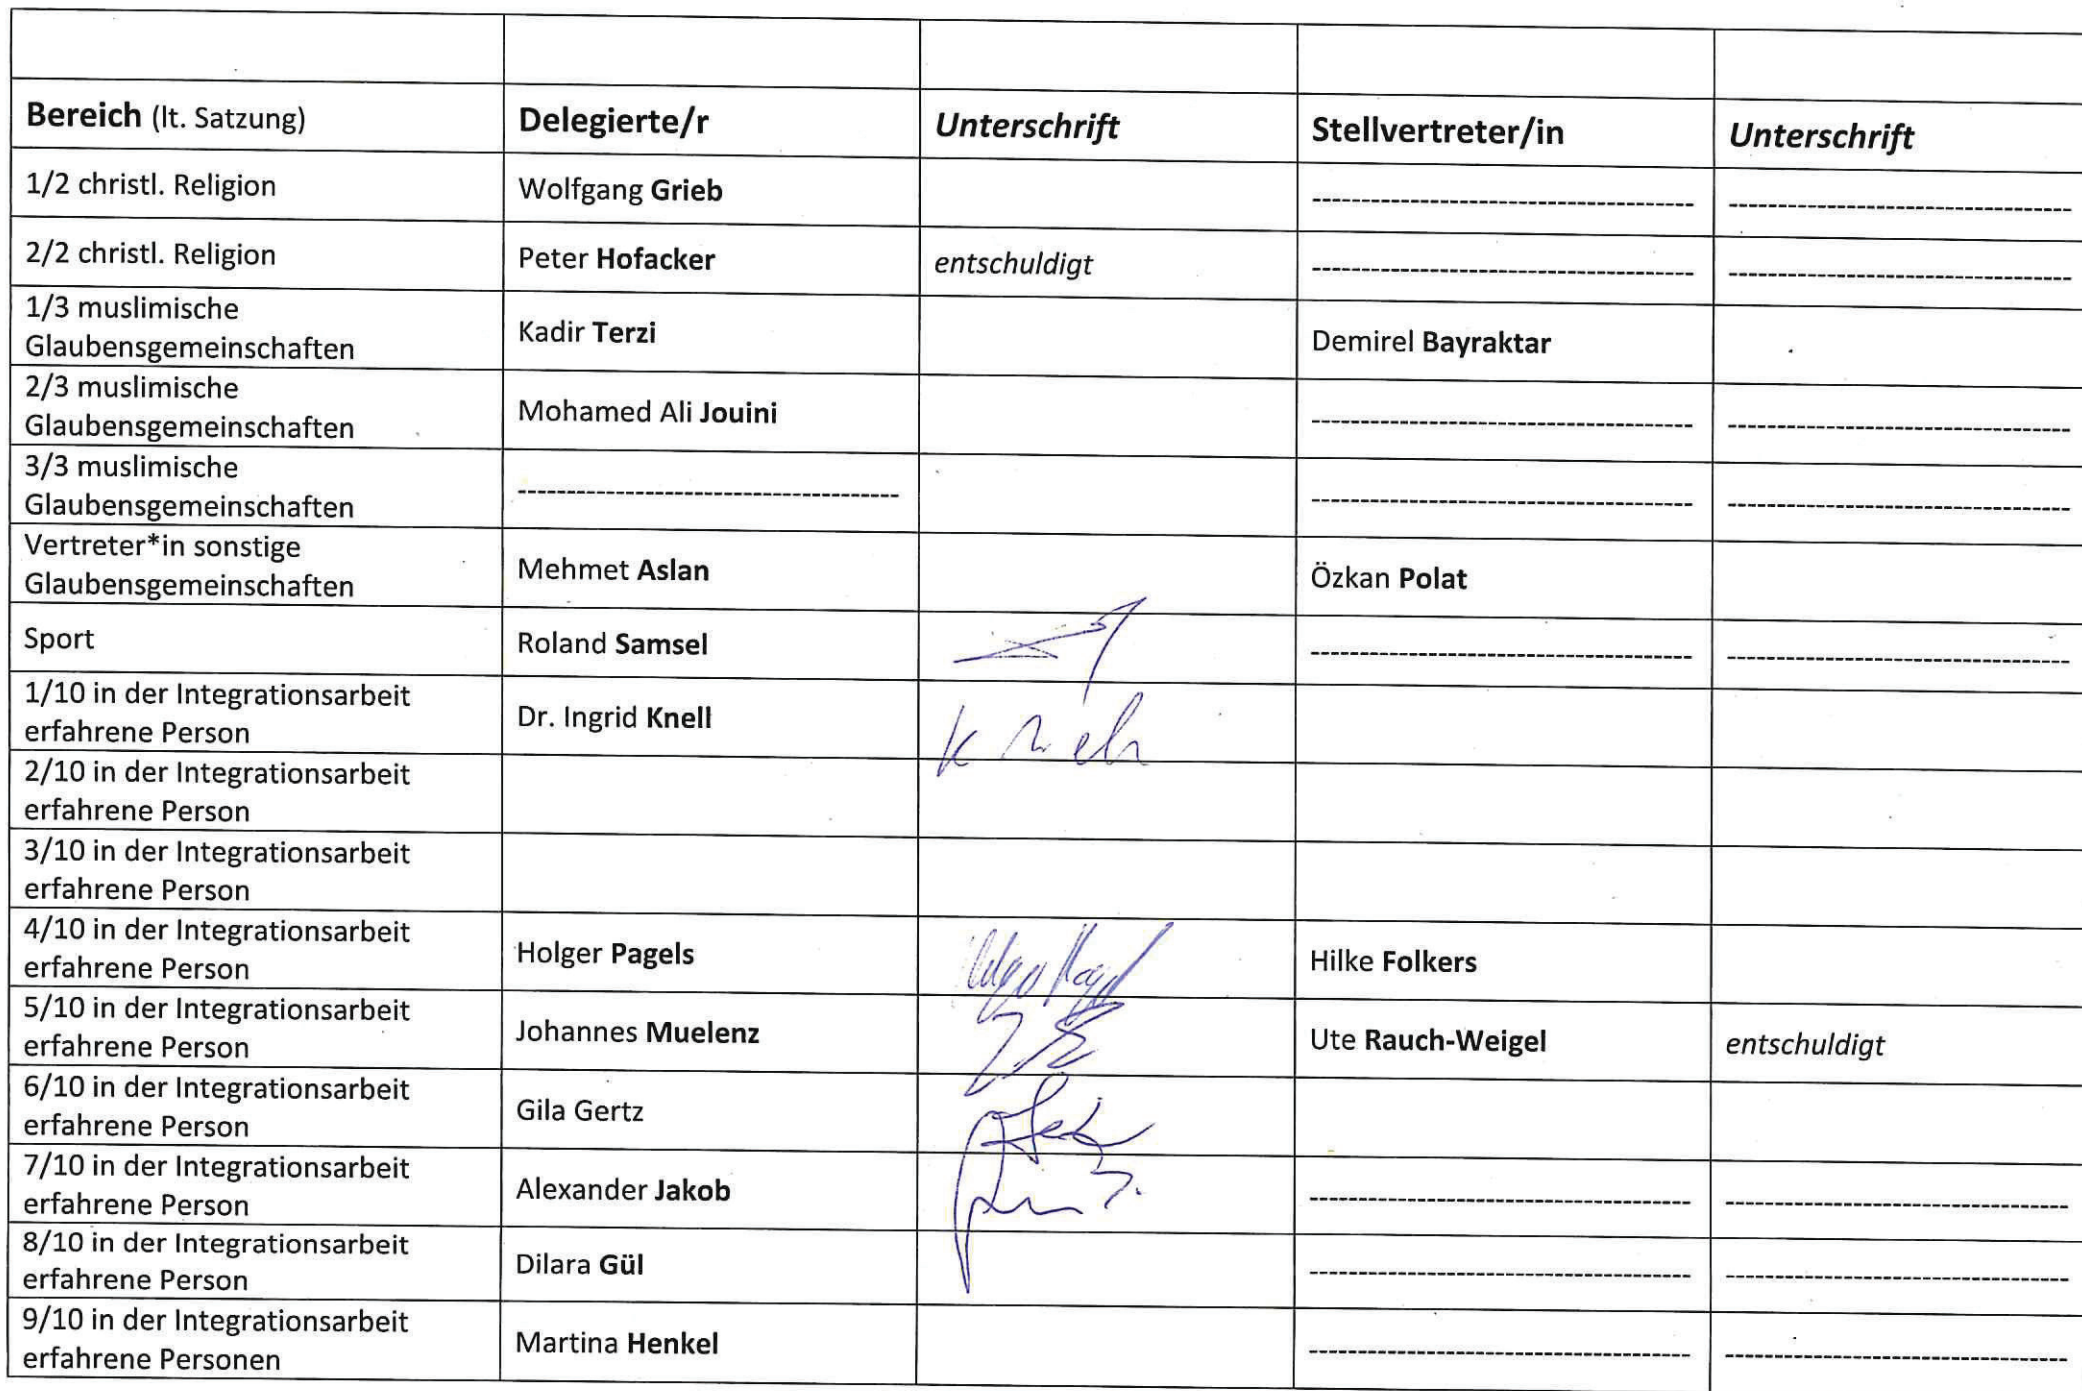 Bereich (lt. Satzung) Delegierte/r Unterschrift Stellvertreter/in Unterschrift
1/2 christl. Religion Wolfgang Grieb ---------------------------------------- ------------------------------------
2/2 christl. Religion Peter Hofacker entschuldigt ---------------------------------------- ------------------------------------
1/3 muslimische
Glaubensgemeinschaften Kadir Terzi Demirel Bayraktar
2/3 muslimische
Glaubensgemeinschaften Mohamed Ali Jouini ---------------------------------------- ------------------------------------
3/3 muslimische
Glaubensgemeinschaften ---------------------------------------- ---------------------------------------- ------------------------------------
Vertreter*in sonstige
Glaubensgemeinschaften Mehmet Aslan Özkan Polat
Sport Roland Samsel ---------------------------------------- ------------------------------------
1/10 in der Integrationsarbeit
erfahrene Person Dr. Ingrid Knell
2/10 in der Integrationsarbeit
erfahrene Person
3/10 in der Integrationsarbeit
erfahrene Person
4/10 in der Integrationsarbeit
erfahrene Person Holger Pagels Hilke Folkers
5/10 in der Integrationsarbeit
erfahrene Person Johannes Muelenz Ute Rauch-Weigel entschuldigt
6/10 in der Integrationsarbeit
erfahrene Person Gila Gertz
7/10 in der Integrationsarbeit
erfahrene Person Alexander Jakob ---------------------------------------- ------------------------------------
8/10 in der Integrationsarbeit
erfahrene Person Dilara Gül ---------------------------------------- ------------------------------------
9/10 in der Integrationsarbeit
erfahrene Personen Martina Henkel ---------------------------------------- ------------------------------------